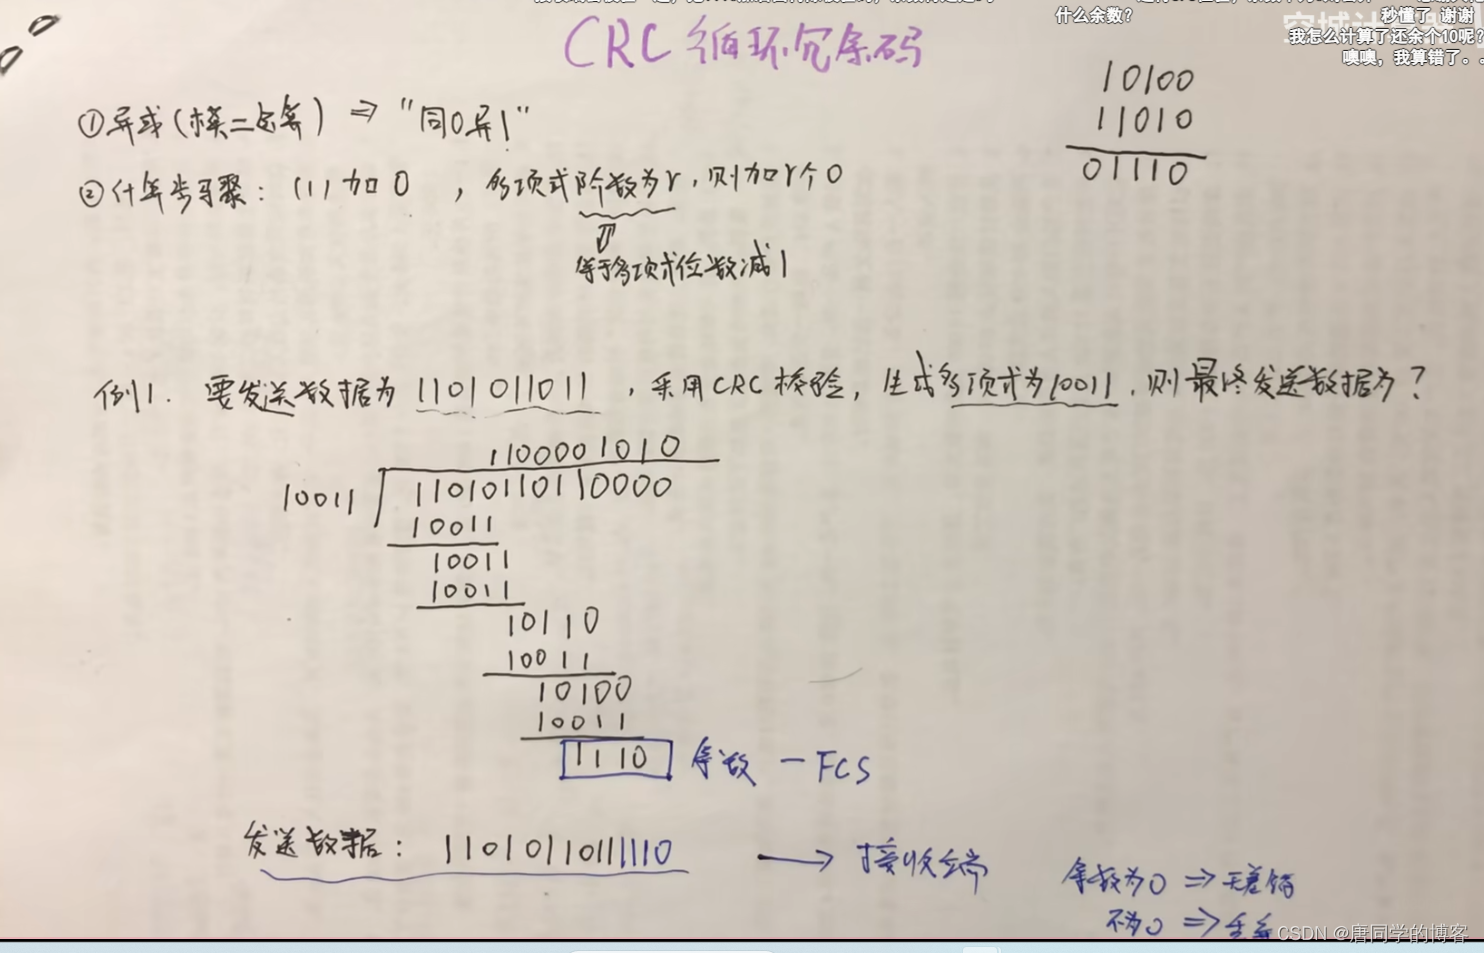 什么余数?
秒懂了 谢谢
我怎么计算了还余个10呢?
噢噢，我算错了。.
CRC 循环冗余码
10100
11010
01110
①异或(模二运算) ⇒ "同0异1"
②计算步骤: (1) 加0 , 多项式阶数为r, 则加r个0
等于多项式位数减1
例1. 要发送数据为 1101011011 , 采用CRC校验, 生成多项式为10011, 则最终发送数据为?
1100001010
10011
11010110110000
10011
10011
10011
10110
10011
10100
10011
1110 余数 — FCS
发送数据: 11010110111110 → 接收端
余数为0 ⇒ 无差错
不为0 ⇒ 丢弃
CSDN @唐同学的博客